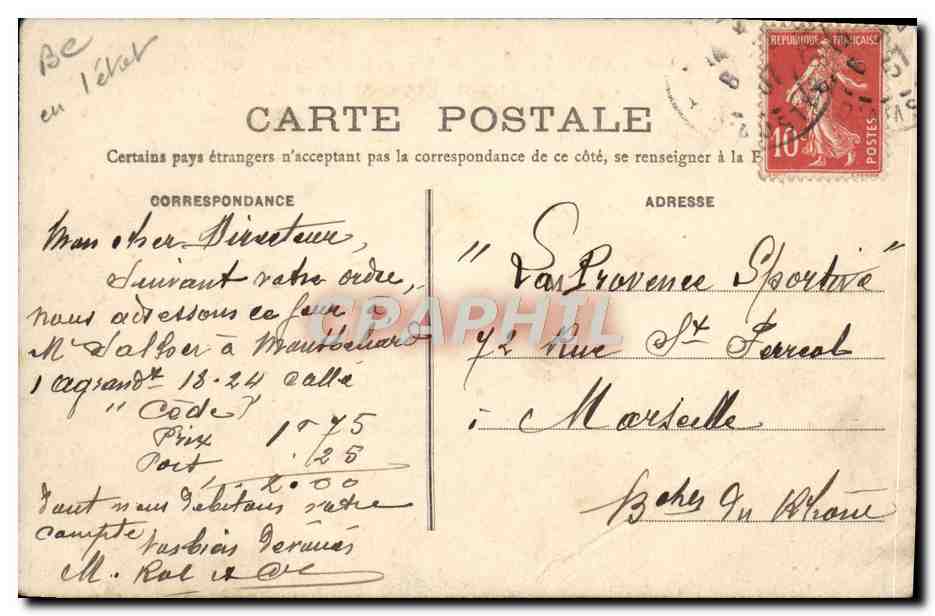 BC
en l'état
REPUBLIQUE FRANÇAISE
10
POSTES
CARTE POSTALE
Certains pays étrangers n'acceptent pas la correspondance de ce côté, se renseigner à la
CORRESPONDANCE
Mon cher Directeur,
Suivant votre ordre,
nous adressons ce jour à
Mr à Montbeliard
1 agrandt 18-24 collé
" Code?
Prix 1f 75
Port . 25
2.00
dont nous débitons votre
compte
Vos biens dévoués
M. Rol & Cie
ADRESSE
" La Provence Sportive "
72 Rue St Ferreol
à Marseille
Bches du Rhône
CPAPHIL